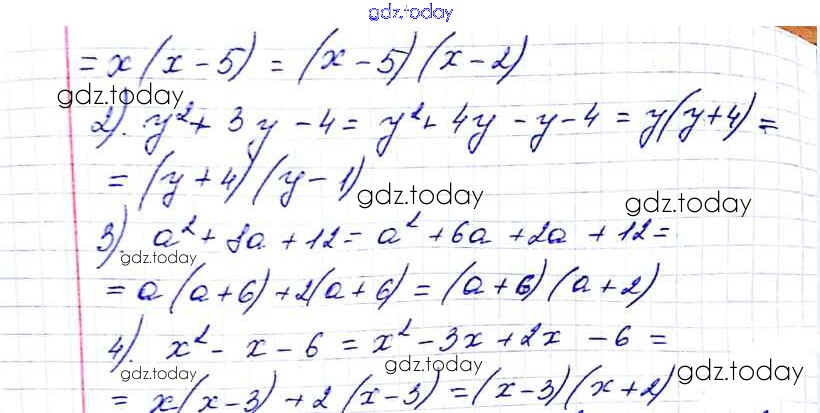 gdz.today
= x(x - 5) = (x - 5)(x - 2)
gdz.today
2). y² + 3y - 4 = y² + 4y - y - 4 = y(y + 4) =
= (y + 4)(y - 1)
gdz.today
gdz.today
3). a² + 8a + 12 = a² + 6a + 2a + 12 =
gdz.today
= a(a + 6) + 2(a + 6) = (a + 6)(a + 2)
4). x² - x - 6 = x² - 3x + 2x - 6 =
gdz.today
gdz.today
gdz.today
= x(x - 3) + 2(x - 3) = (x - 3)(x + 2)